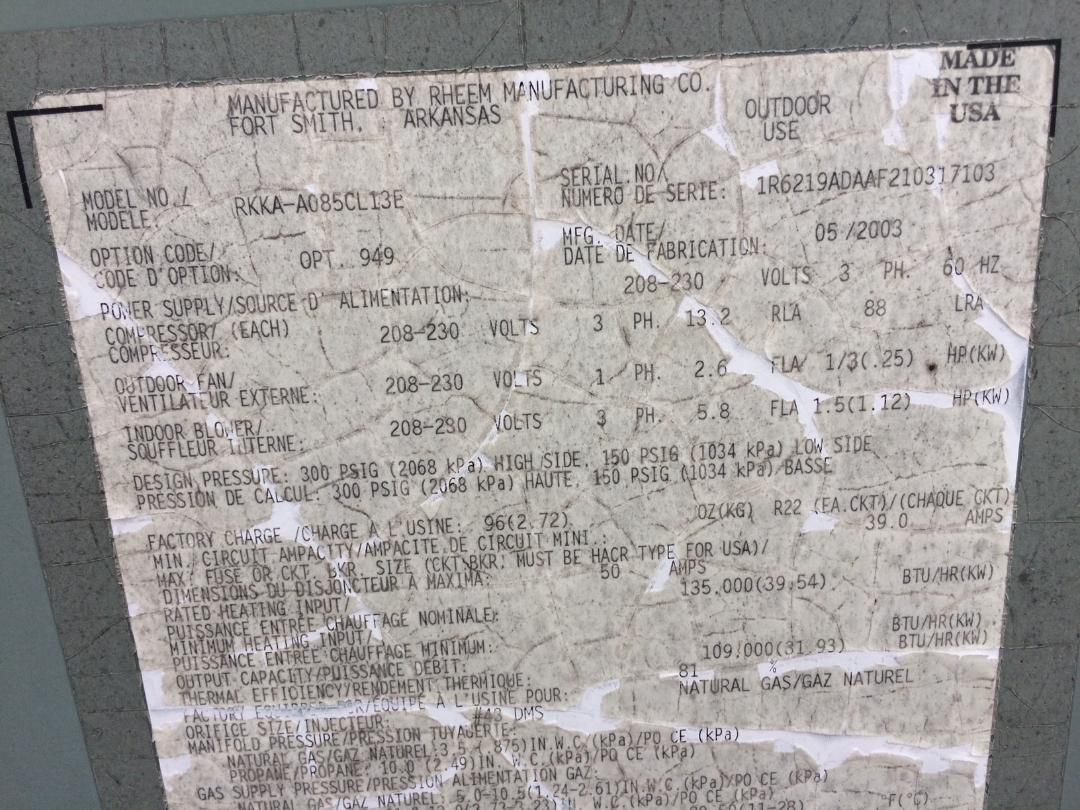 MANUFACTURED BY RHEEM MANUFACTURING CO.
FORT SMITH, ARKANSAS
OUTDOOR
USE
MADE
IN THE
USA
MODEL NO./
MODELE:
RKKA-A085CL13E
SERIAL NO/
NUMERO DE SERIE:
1R6219ADAAF210317103
OPTION CODE/
CODE D'OPTION:
OPT. 949
MFG. DATE/
DATE DE FABRICATION:
05/2003
POWER SUPPLY/SOURCE D' ALIMENTATION:
208-230 VOLTS 3 PH. 60 HZ
COMPRESSOR/ (EACH)
COMPRESSEUR:
208-230 VOLTS 3 PH. 13.2 RLA 88 LRA
OUTDOOR FAN/
VENTILATEUR EXTERNE:
208-230 VOLTS 1 PH. 2.6 FLA/ 1/3(.25) HP(KW)
INDOOR BLOWER/
SOUFFLEUR INTERNE:
208-230 VOLTS 3 PH. 5.8 FLA 1.5(1.12) HP(KW)
DESIGN PRESSURE: 300 PSIG (2068 kPa) HIGH SIDE, 150 PSIG (1034 kPa) LOW SIDE
PRESSION DE CALCUL: 300 PSIG (2068 kPa) HAUTE, 150 PSIG (1034 kPa) BASSE
FACTORY CHARGE /CHARGE A L'USINE: 96(2.72) OZ(KG) R22 (EA.CKT)/(CHAQUE CKT)
MIN./CIRCUIT AMPACITY/AMPACITE DE CIRCUIT MINI.: 39.0 AMPS
MAX. FUSE OR CKT. BKR. SIZE (CKT BKR. MUST BE HACR TYPE FOR USA)/
DIMENSIONS DU DISJONCTEUR A MAXIMA: 50 AMPS
RATED HEATING INPUT/
PUISSANCE ENTREE CHAUFFAGE NOMINALE: 135,000(39.54) BTU/HR(KW)
MINIMUM HEATING INPUT/
PUISSANCE ENTREE CHAUFFAGE MINIMUM: BTU/HR(KW)
OUTPUT CAPACITY/PUISSANCE DEBIT: 109,000(31.93) BTU/HR(KW)
THERMAL EFFICIENCY/RENDEMENT THERMIQUE: 81 %
FACTORY EQUIPPED FOR/EQUIPE A L'USINE POUR: NATURAL GAS/GAZ NATUREL
ORIFICE SIZE/INJECTEUR: #43 DMS
MANIFOLD PRESSURE/PRESSION TUYAUTERIE:
NATURAL GAS/GAZ NATUREL:3.5 (.875)IN.W.C.(kPa)/PO CE (kPa)
PROPANE/PROPANE: 10.0 (2.49)IN. W.C.(kPa)/PO CE (kPa)
GAS SUPPLY PRESSURE/PRESSION ALIMENTATION GAZ:
NATURAL GAS/GAZ NATUREL: 5.0-10.5(1.24-2.61)IN.W.C. (kPa)/PO CE (kPa)
W.C.(kPa)/PO CE (kPa)
°F(°C)